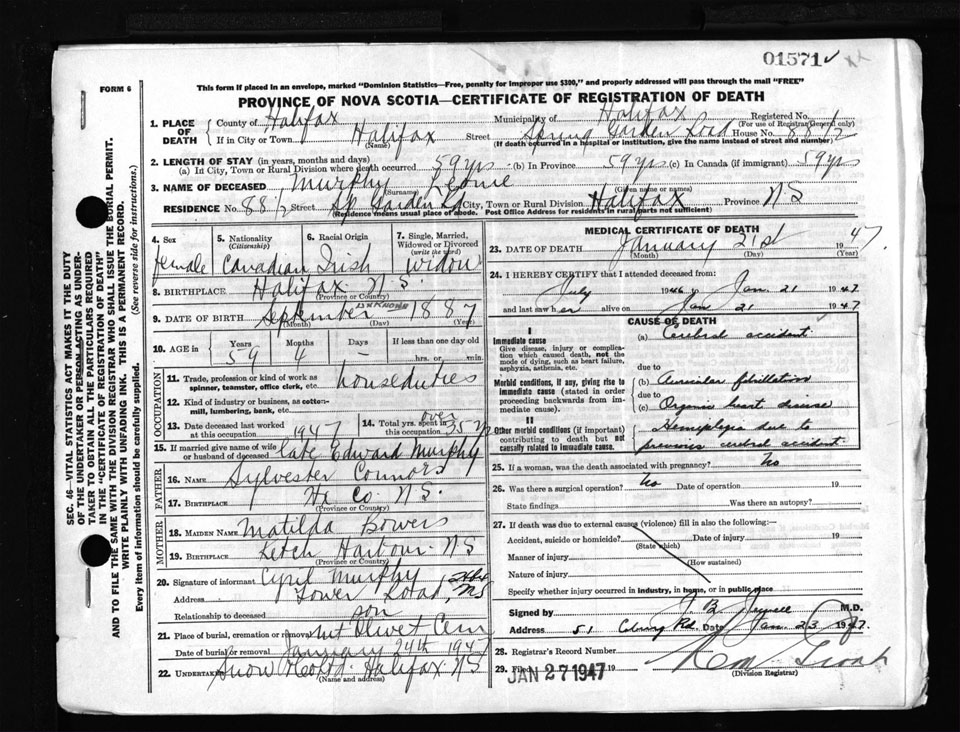 01571
FORM 6
This form if placed in an envelope, marked "Dominion Statistics—Free, penalty for improper use $300," and properly addressed will pass through the mail "FREE"
PROVINCE OF NOVA SCOTIA—CERTIFICATE OF REGISTRATION OF DEATH
1. PLACE OF DEATH County of Halifax Municipality of Halifax Registered No.
(For use of Registrar General only)
If in City or Town Halifax Street Spring Garden Road House No. 88 1/2
(Name) (If death occurred in a hospital or institution, give the name instead of street and number)
2. LENGTH OF STAY (in years, months and days)
(a) In City, Town or Rural Division where death occurred 59 yrs (b) In Province 59 yrs (c) In Canada (if immigrant) 59 yrs
3. NAME OF DECEASED Murphy Leonie
(Surname) (Given name or names)
RESIDENCE No. 88 1/2 Sp Garden Rd City, Town or Rural Division Halifax Province NS
(Residence means usual place of abode. Post Office Address for residents in rural parts not sufficient)
4. Sex female
5. Nationality (Citizenship) Canadian
6. Racial Origin Irish
7. Single, Married, Widowed or Divorced (write the word) widow
8. BIRTHPLACE Halifax N.S.
(Province or Country)
9. DATE OF BIRTH September UNKNOWN 1887
(Month) (Day) (Year)
10. AGE in Years 59 Months 4 Days – If less than one day old hrs. or min.
OCCUPATION
11. Trade, profession or kind of work as spinner, teamster, office clerk, etc. house duties
12. Kind of industry or business, as cotton-mill, lumbering, bank, etc.
13. Date deceased last worked at this occupation 1947
14. Total yrs. spent in this occupation over 35 yrs
15. If married give name of wife or husband of deceased late Edward Murphy
FATHER
16. Name Sylvester Connors
17. Birthplace Hx Co. N.S.
(Province or Country)
MOTHER
18. MAIDEN NAME Matilda Bowers
19. BIRTHPLACE Ketch Harbour NS
(Province or Country)
20. Signature of informant Cyril Murphy
Address Tower Road, Hfx NS
Relationship to deceased son
21. Place of burial, cremation or removal Mt Olivet Cem
Date of burial or removal January 24th 1947
22. Undertaker Snow & Co Ltd. Halifax NS
(Name and address)
MEDICAL CERTIFICATE OF DEATH
23. DATE OF DEATH January 21st 1947.
(Month) (Day) (Year)
24. I HEREBY CERTIFY that I attended deceased from:
July 1946 to Jan. 21 1947
and last saw her alive on Jan 21 1947
CAUSE OF DEATH
I
Immediate cause
Give disease, injury or complication which caused death, not the mode of dying, such as heart failure, asphyxia, asthenia, etc.
(a) Cerebral accident
due to
Morbid conditions, if any, giving rise to immediate cause (stated in order proceeding backwards from immediate cause).
(b) Auricular fibrillation
due to
(c) Organic heart disease
II
Other morbid conditions (if important) contributing to death but not causally related to immediate cause.
Hemiplegia due to
previous cerebral accident
25. If a woman, was the death associated with pregnancy? No
26. Was there a surgical operation? No Date of operation 19
State findings Was there an autopsy?
27. If death was due to external causes (violence) fill in also the following:—
Accident, suicide or homicide? Date of injury 19
(State which)
Manner of injury
(How sustained)
Nature of injury
Specify whether injury occurred in industry, in home, or in public place
Signed by J B M.D.
Address 51 Coburg Rd. Date Jan. 23 1947.
28. Registrar's Record Number
29. Filed JAN 27 1947 19
(Division Registrar)
SEC. 46—VITAL STATISTICS ACT MAKES IT THE DUTY OF THE UNDERTAKER OR PERSON ACTING AS UNDERTAKER TO OBTAIN ALL THE PARTICULARS REQUIRED IN THE "CERTIFICATE OF REGISTRATION OF DEATH" AND TO FILE THE SAME WITH THE DIVISION REGISTRAR WHO SHALL ISSUE THE BURIAL PERMIT.
WRITE PLAINLY WITH UNFADING INK. THIS IS A PERMANENT RECORD.
Every item of information should be carefully supplied. (See reverse side for instructions.)